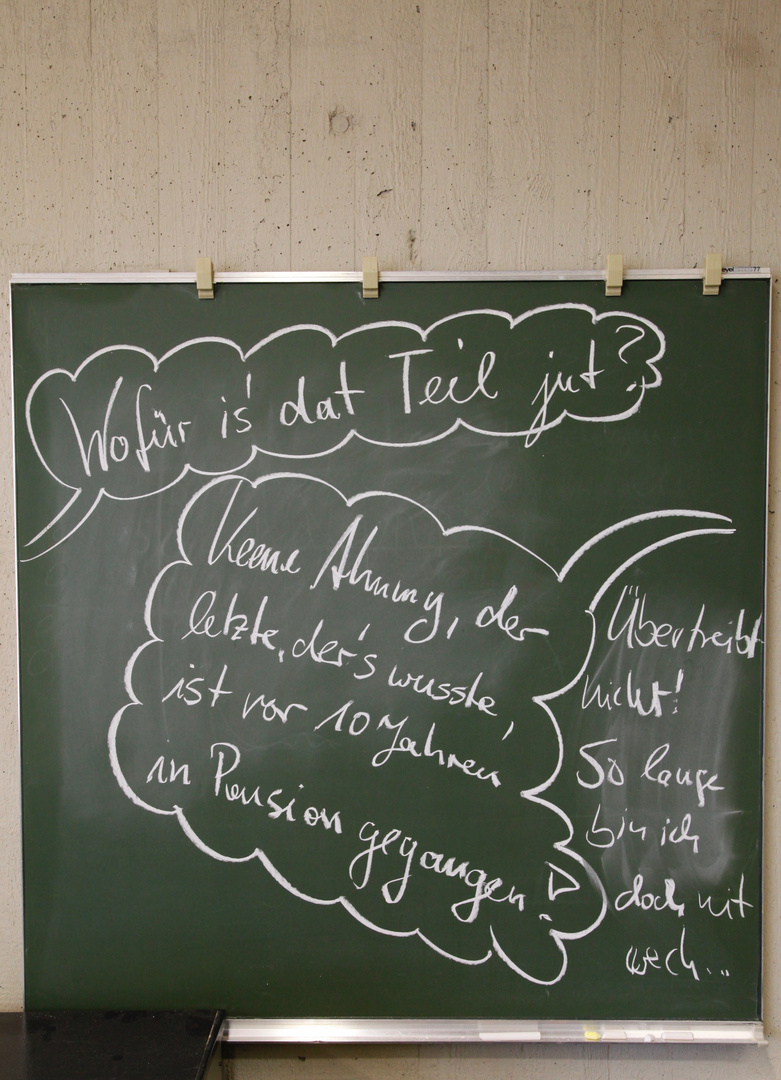 Wofür is' dat Teil jut?
Keene Ahnung, der
letzte, der's wusste,
ist vor 10 Jahren
in Pension gegangen!
Übertreibt
nicht!
So lange
bin ich
doch nit
wech...